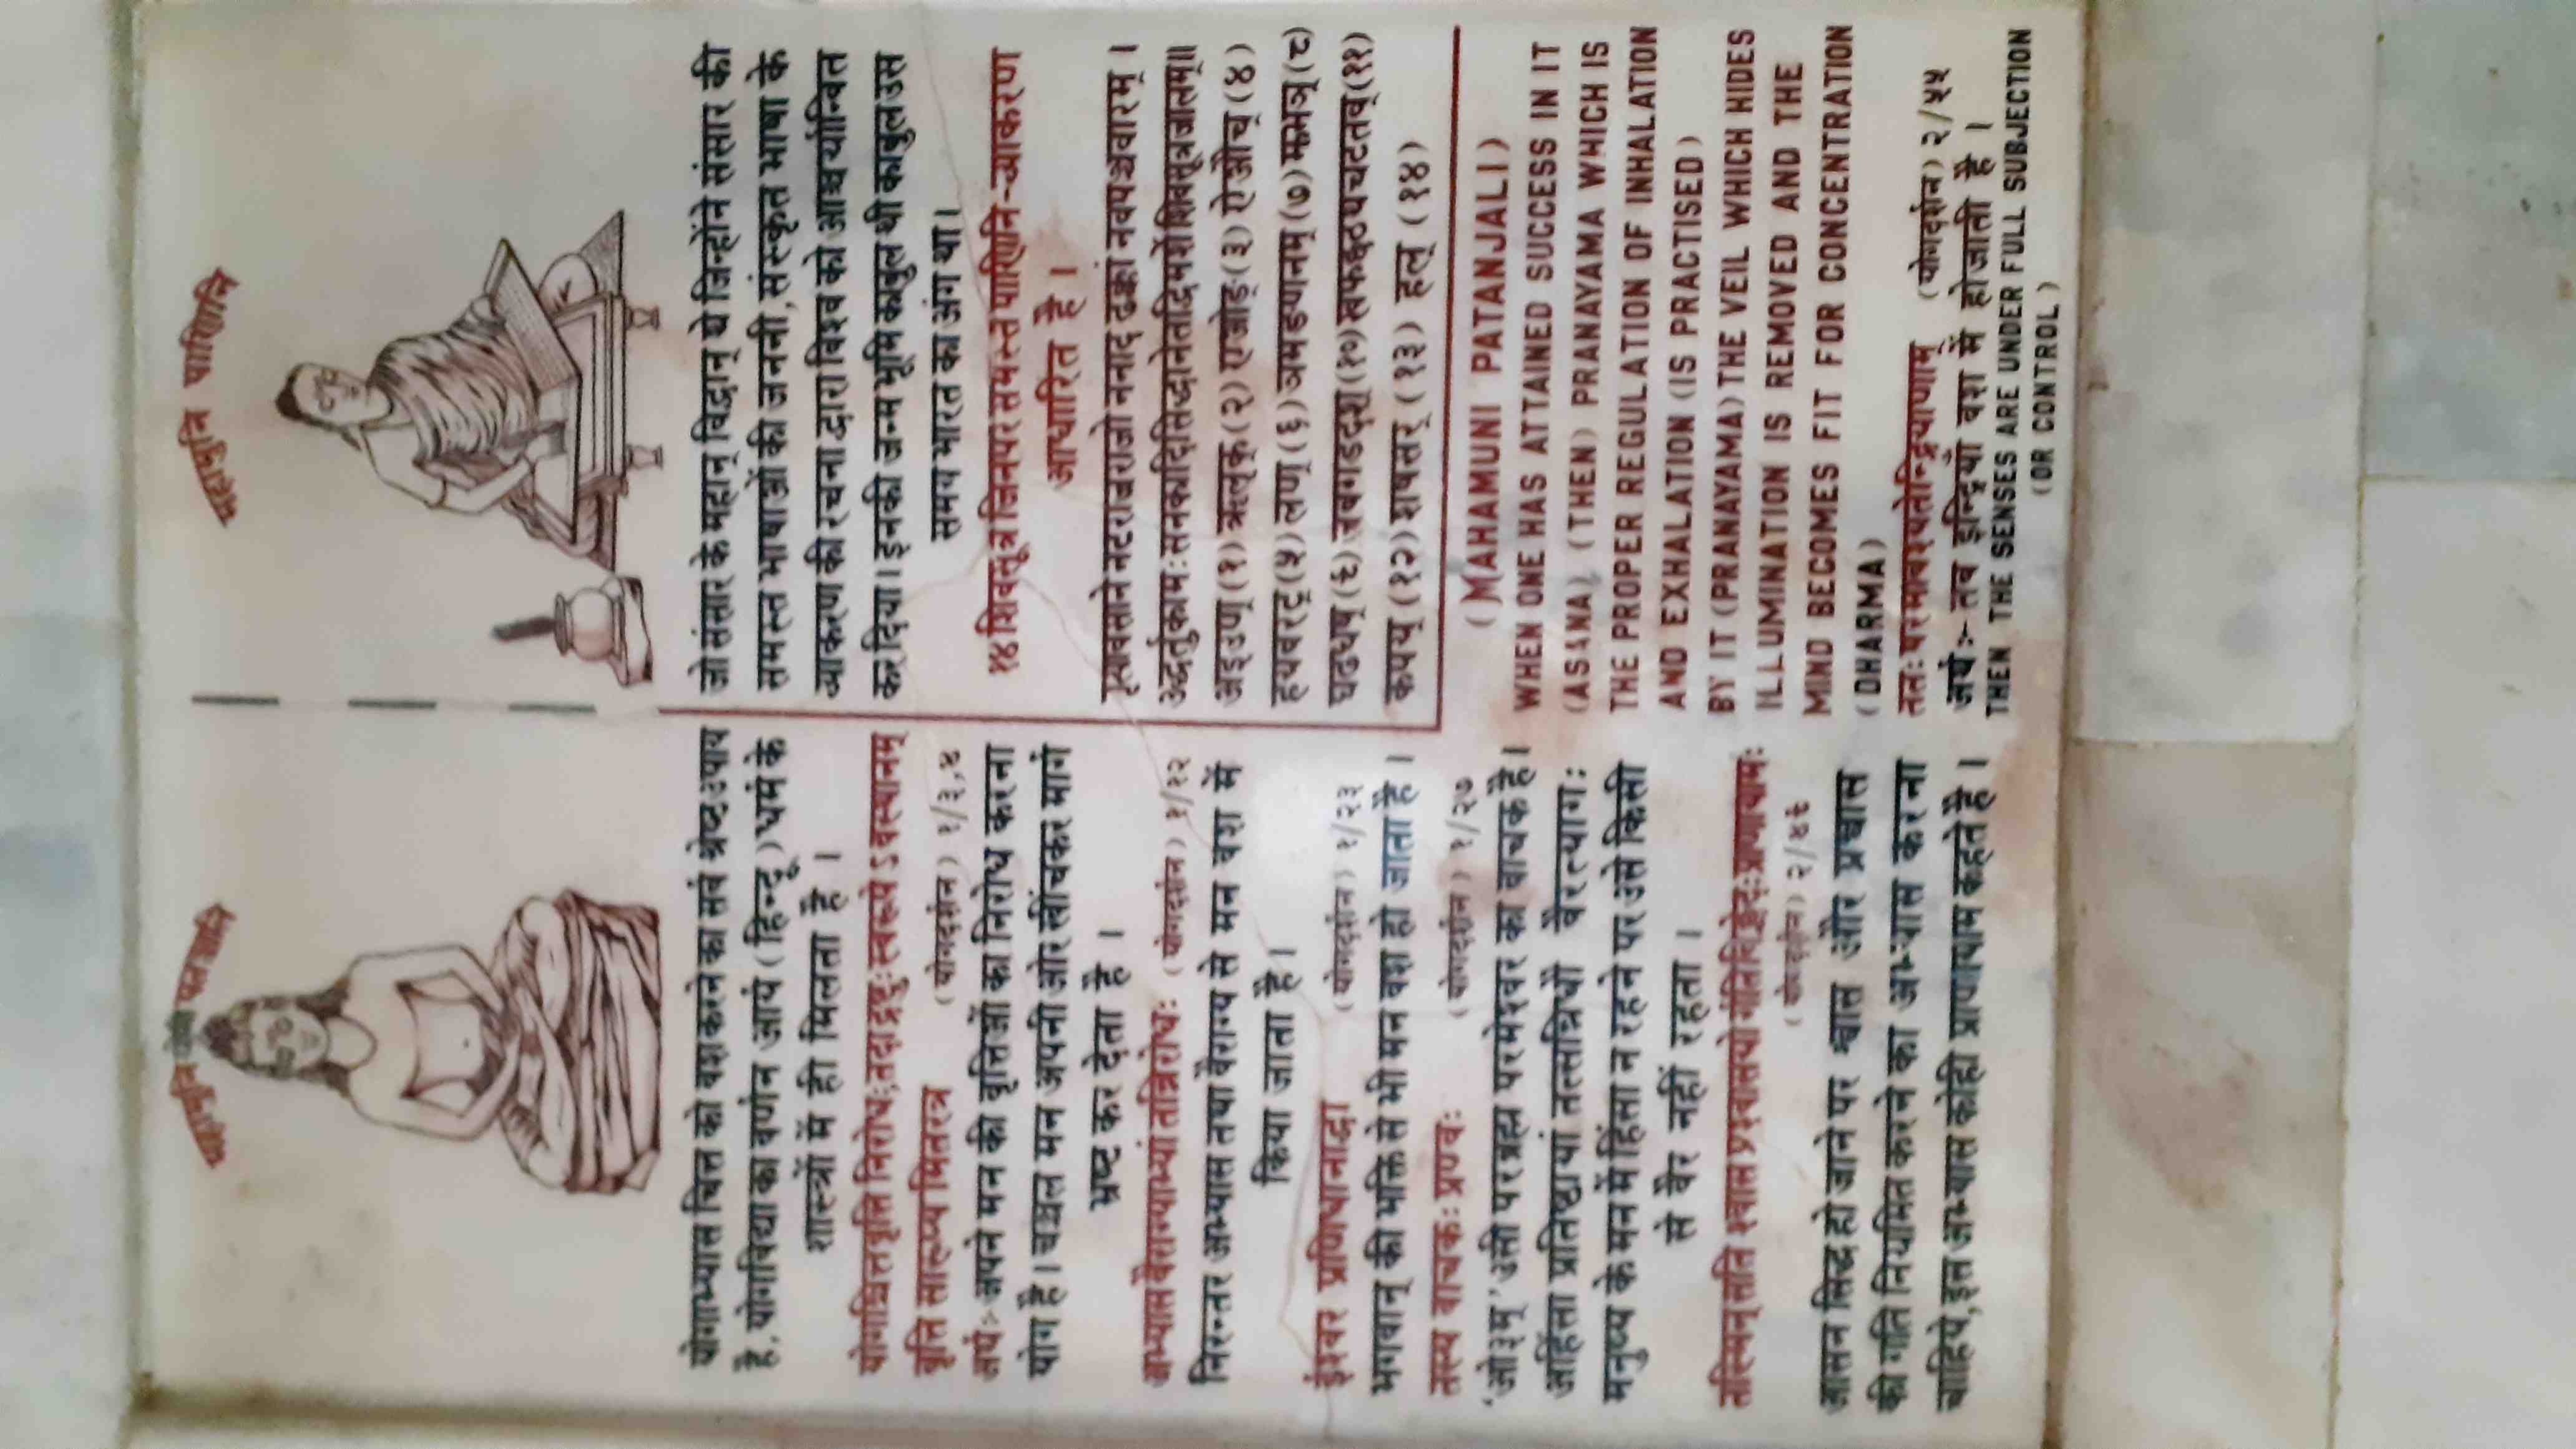 महामुनि पतञ्जलि
योगाभ्यास चित्त को वश करने का सर्व श्रेष्ठ उपाय
है, योगविद्या का वर्णन आर्य (हिन्दू) धर्म के
शास्त्रों में ही मिलता है ।
योगश्चित्तवृत्ति निरोधः तदा द्रष्टुः स्वरूपे ऽ वस्थानम्
वृत्ति सारूप्य मितरत्र (योगदर्शन) १/३,४
अर्थ :- अपने मन की वृत्तिओं का निरोध करना
योग है। चञ्चल मन अपनी ओर खींचकर मार्ग
भ्रष्ट कर देता है ।
अभ्यास वैराग्याभ्यां तन्निरोधः (योगदर्शन) १/१२
निरन्तर अभ्यास तथा वैराग्य से मन वश में
किया जाता है।
ईश्वर प्रणिधानाद्वा (योगदर्शन) १/२३
भगवान् की भक्ति से भी मन वश हो जाता है ।
तस्य वाचकः प्रणवः (योगदर्शन) १/२७
'ओ३म्' उसी परब्रह्म परमेश्वर का वाचक है।
अहिंसा प्रतिष्ठायां तत्सन्निधौ वैरत्यागः
मनुष्य के मन में हिंसा न रहने पर उसे किसी
से वैर नहीं रहता ।
तस्मिन् सति श्वास प्रश्वासयो र्गतिविच्छेदः प्राणायामः
(योगदर्शन) २/४९
आसन सिद्ध हो जाने पर श्वास और प्रश्वास
की गति नियमित करने का अभ्यास करना
चाहिये, इस अभ्यास को ही प्राणायाम कहते है ।
महामुनि पाणिनि
जो संसार के महान् विद्वान् थे जिन्होंने संसार की
समस्त भाषाओं की जननी, संस्कृत भाषा के
व्याकरण की रचना द्वारा विश्व को आश्चर्यान्वित
कर दिया। इनकी जन्म भूमि काबुल थी काबुल उस
समय भारत का अंग था।
१४ शिवसूत्र जिनपर समस्त पाणिनि-व्याकरण
आधारित है ।
नृत्यावसाने नटराजराजो ननाद ढक्कां नवपञ्चवारम् ।
उद्धर्तुकामः सनकादिसिद्धानेतद्विमर्शे शिवसूत्रजालम्॥
अइउण् (१) ऋलृक् (२) एओङ् (३) ऐऔच् (४)
हयवरट् (५) लण् (६) ञमङणनम् (७) झभञ् (८)
घढधष् (९) जबगडदश् (१०) खफछठथचटतव् (११)
कपय् (१२) शषसर् (१३) हल् (१४)
(MAHAMUNI PATANJALI)
WHEN ONE HAS ATTAINED SUCCESS IN IT
(ASANA), (THEN) PRANAYAMA WHICH IS
THE PROPER REGULATION OF INHALATION
AND EXHALATION (IS PRACTISED)
BY IT (PRANAYAMA) THE VEIL WHICH HIDES
ILLUMINATION IS REMOVED AND THE
MIND BECOMES FIT FOR CONCENTRATION
(DHARMA)
ततः परमावश्यतेन्द्रियाणाम् (योगदर्शन) २/५५
अर्थ :- तब इन्द्रियाँ वश में होजाती है ।
THEN THE SENSES ARE UNDER FULL SUBJECTION
(OR CONTROL)